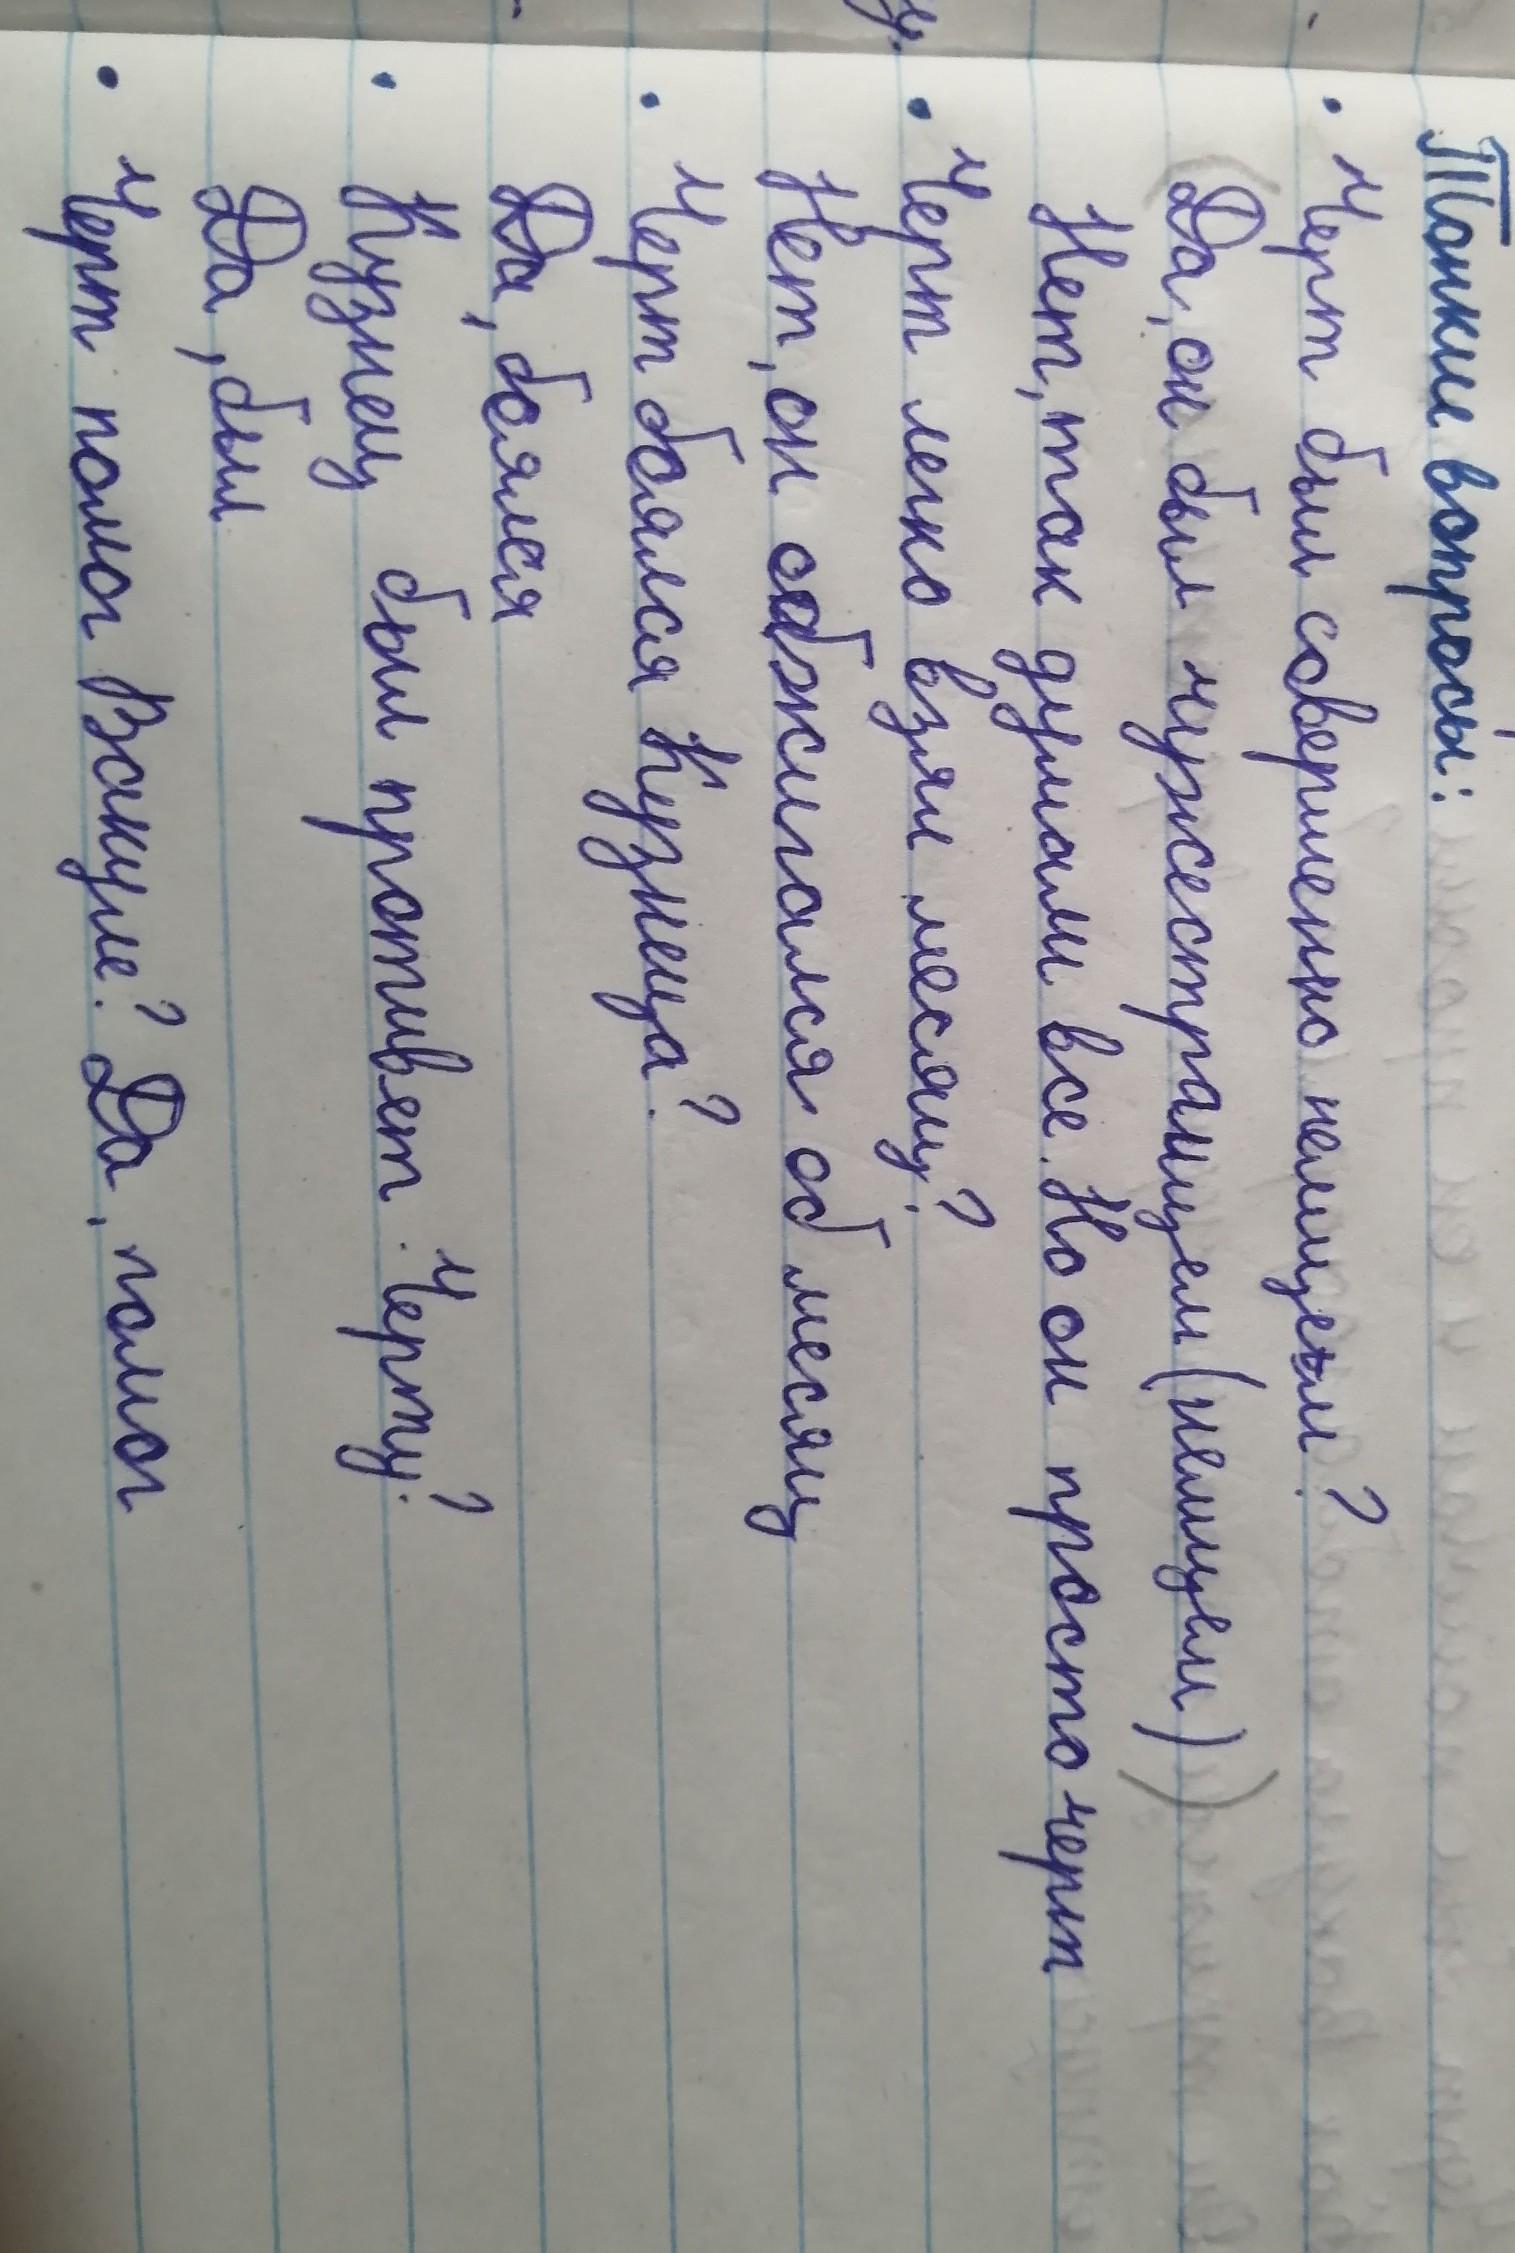 Тонкие вопросы:
• Черт был совершенно немцем?
(Да, он был чужестранцем (немцем))
Нет, так думали все. Но он просто черт
• Черт легко взял месяц?
Нет, он обжигался об месяц
• Черт боялся Кузнеца?
Да, боялся
• Кузнец был противен Черту?
Да, был
• Черт помог Вакуле? Да, помог